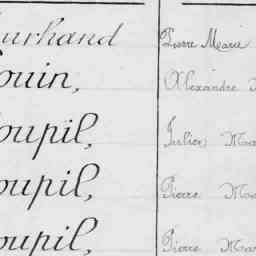 urhand Pierre Marie
ouin, Alexandre
oupil, Julien Ma
oupil, Pierre Ma
oupil, Pierre Mar